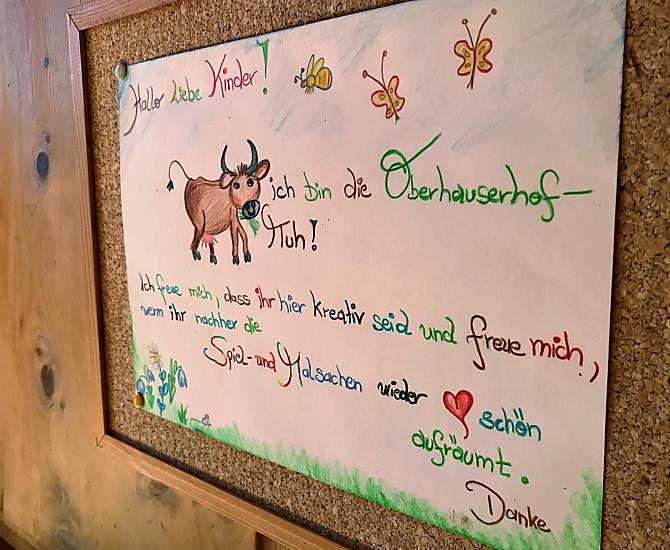 Hallo liebe Kinder!
ich bin die Oberhauserhof-
Kuh!
Ich freue mich, dass ihr hier kreativ seid und freue mich,
wenn ihr nachher die
Spiel- und Malsachen wieder schön
aufräumt.
Danke